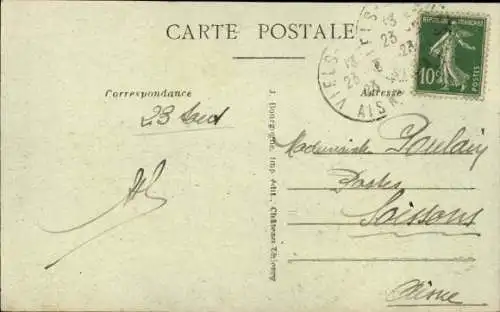 CARTE POSTALE
RÉPUBLIQUE FRANÇAISE
10c
POSTES
VIELS
AISNE
13
23
Correspondance
Adresse
23 Aout
J. Bourgogne, Imp. édit., Château-Thierry
Mademoiselle Poulain
Postes
Soissons
Aisne